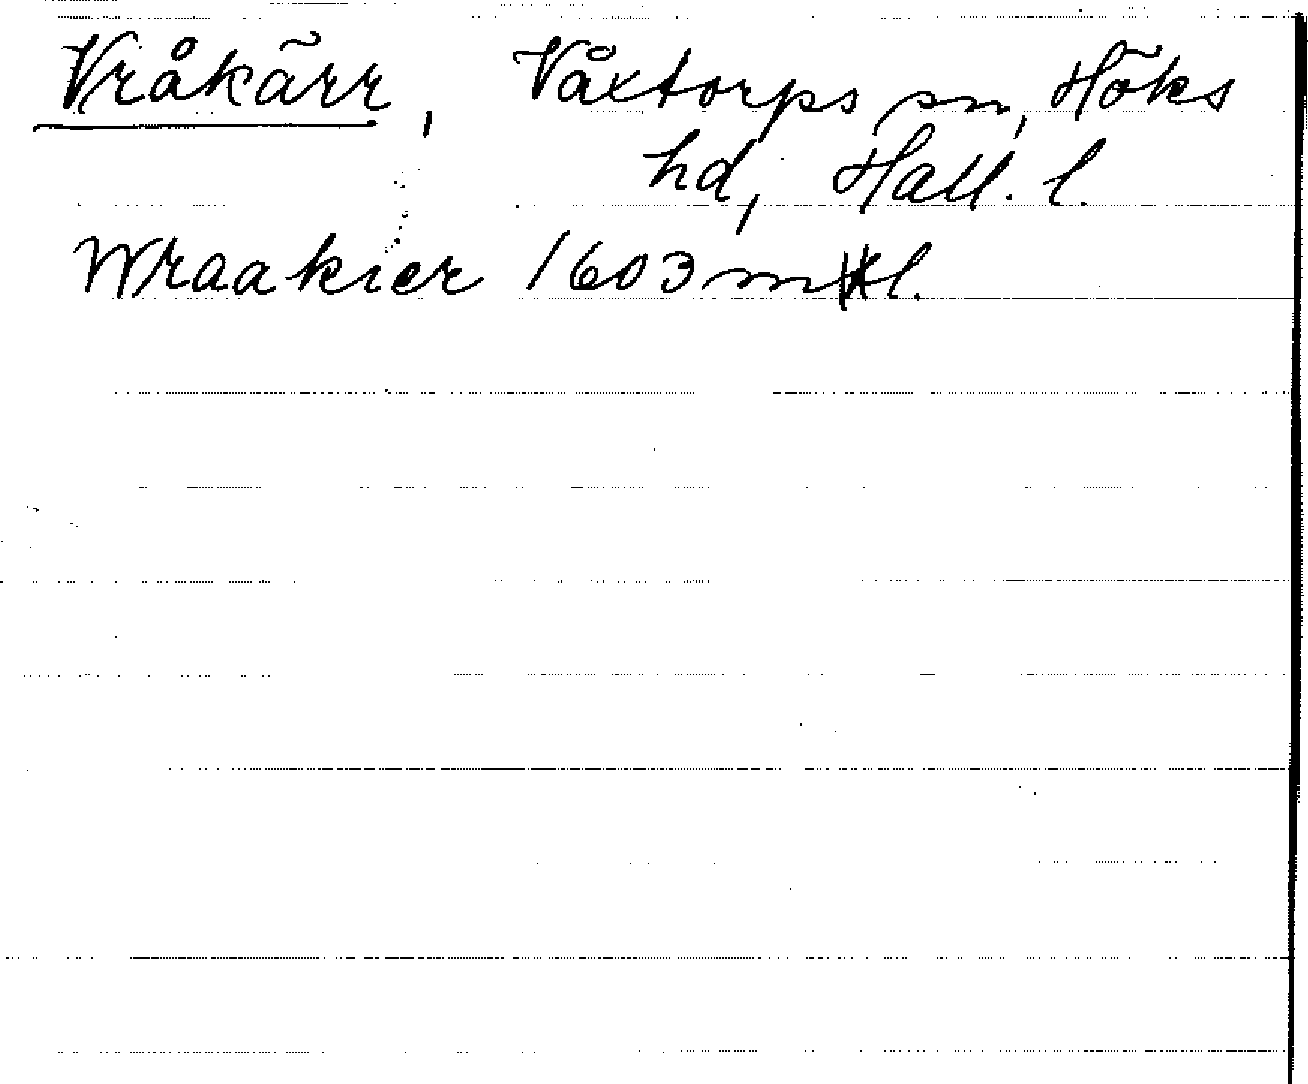 Vråkärr, Våxtorps sn, Höks
hd, Hall. l.
Wraakier 1603 mtl.